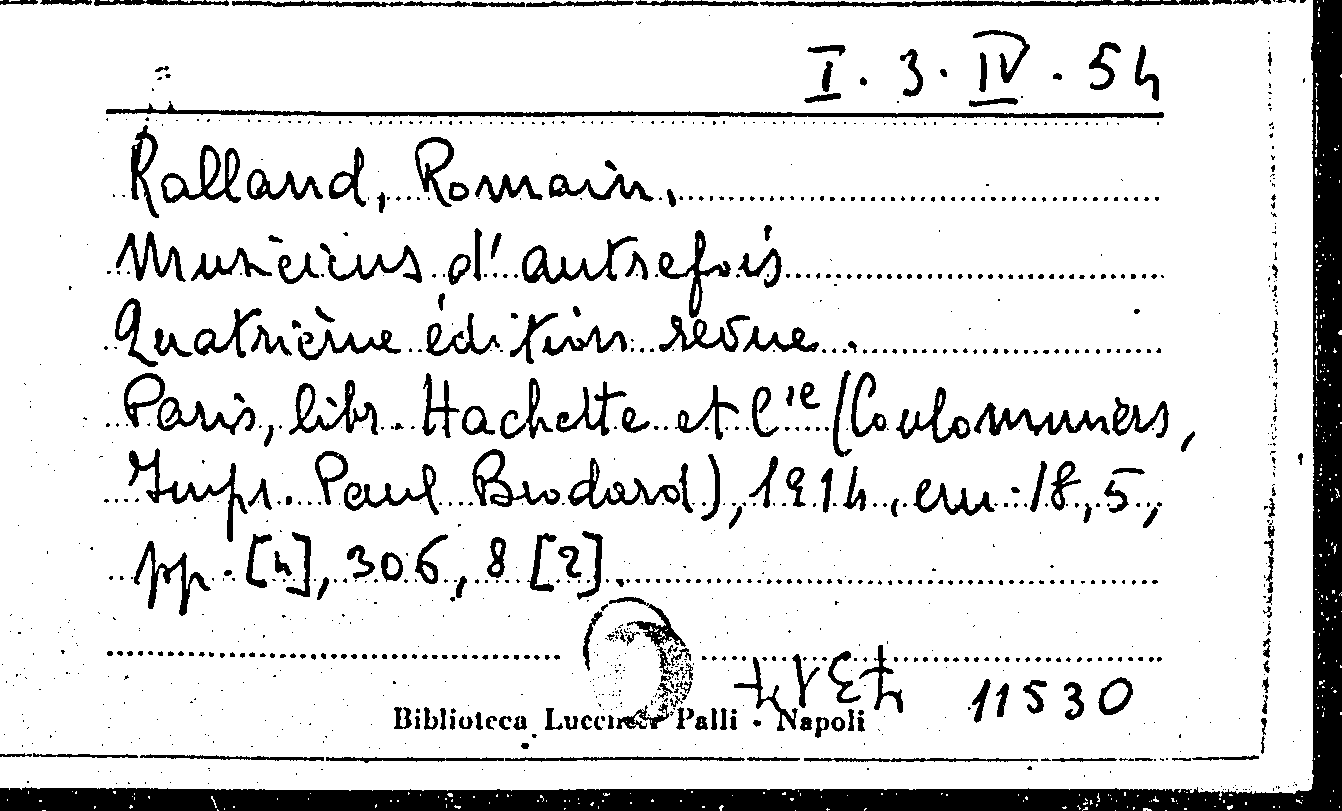 I. 3. IV. 54
Rolland, Romain.
Musiciens d'autrefois
Quatrième édition revue.
Paris, libr. Hachette et C.ie (Coulommiers,
Impr. Paul Brodard), 1914, cm. 18,5,
pp. [4], 306, 8 [2].
11530
Biblioteca Lucchesi Palli - Napoli